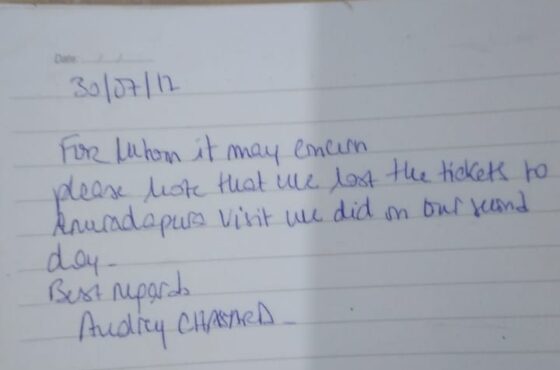 Date: / /
30/07/12
For whom it may concern
please note that we lost the tickets to
Anuradapura visit we did on our second
day.
Best regards
Audrey